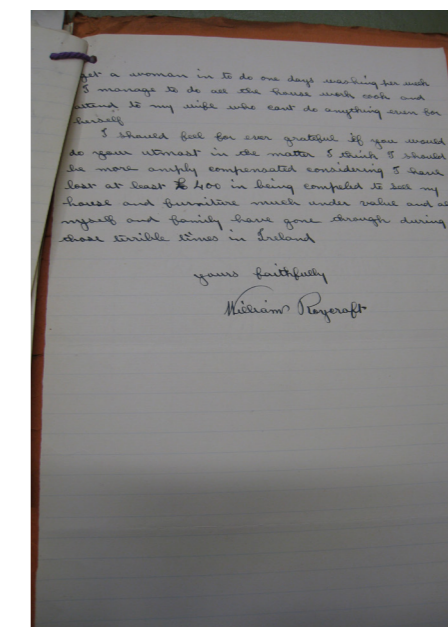 get a woman in to do one days washing per week
I manage to do all the house work cook and
attend to my wife who cant do anything even for
herself
I should feel for ever grateful if you would
do your utmost in the matter I think I should
be more amply compensated considering I have
lost at least £400 in being compelled to sell my
house and furniture much under value and all
myself and family have gone through during
those terrible times in Ireland
yours faithfully
William Roycraft